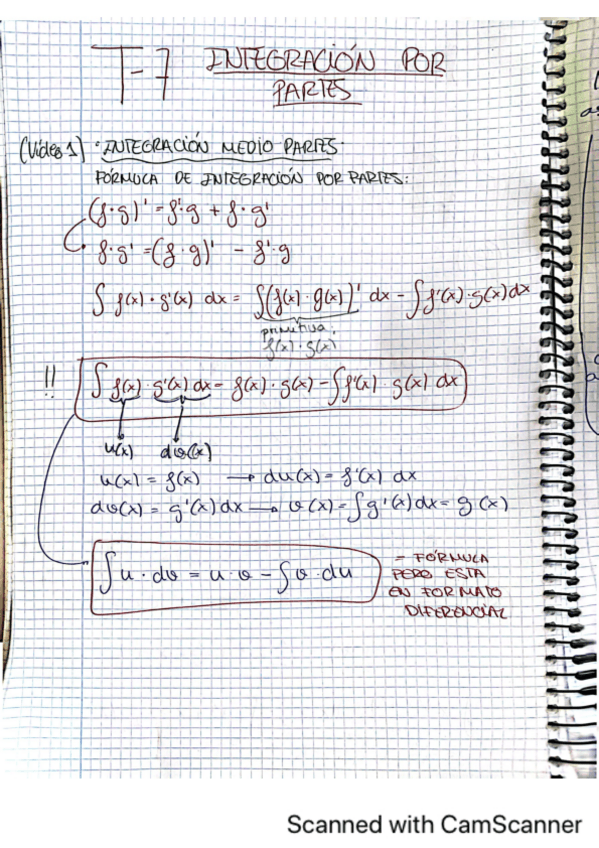 T-7 INTEGRACIÓN POR
PARTES
(Video 1) · INTEGRACIÓN MEDIO PARTES·
FÓRMULA DE INTEGRACIÓN POR PARTES:
(f·g)' = f'·g + f·g'
f·g' = (f·g)' - f'·g
∫ f(x)·g'(x) dx = ∫(f(x)·g(x))' dx - ∫f'(x)·g(x)dx
primitiva,
f(x)·g(x)
!! ∫ f(x)·g'(x) dx = f(x)·g(x) - ∫f'(x)·g(x) dx
u(x) dv(x)
u(x) = f(x) → du(x) = f'(x) dx
dv(x) = g'(x) dx → v(x) = ∫g'(x)dx = g(x)
∫u·dv = u·v - ∫v·du
= FÓRMULA
PERO ESTA
EN FORMATO
DIFERENCIAL
Scanned with CamScanner